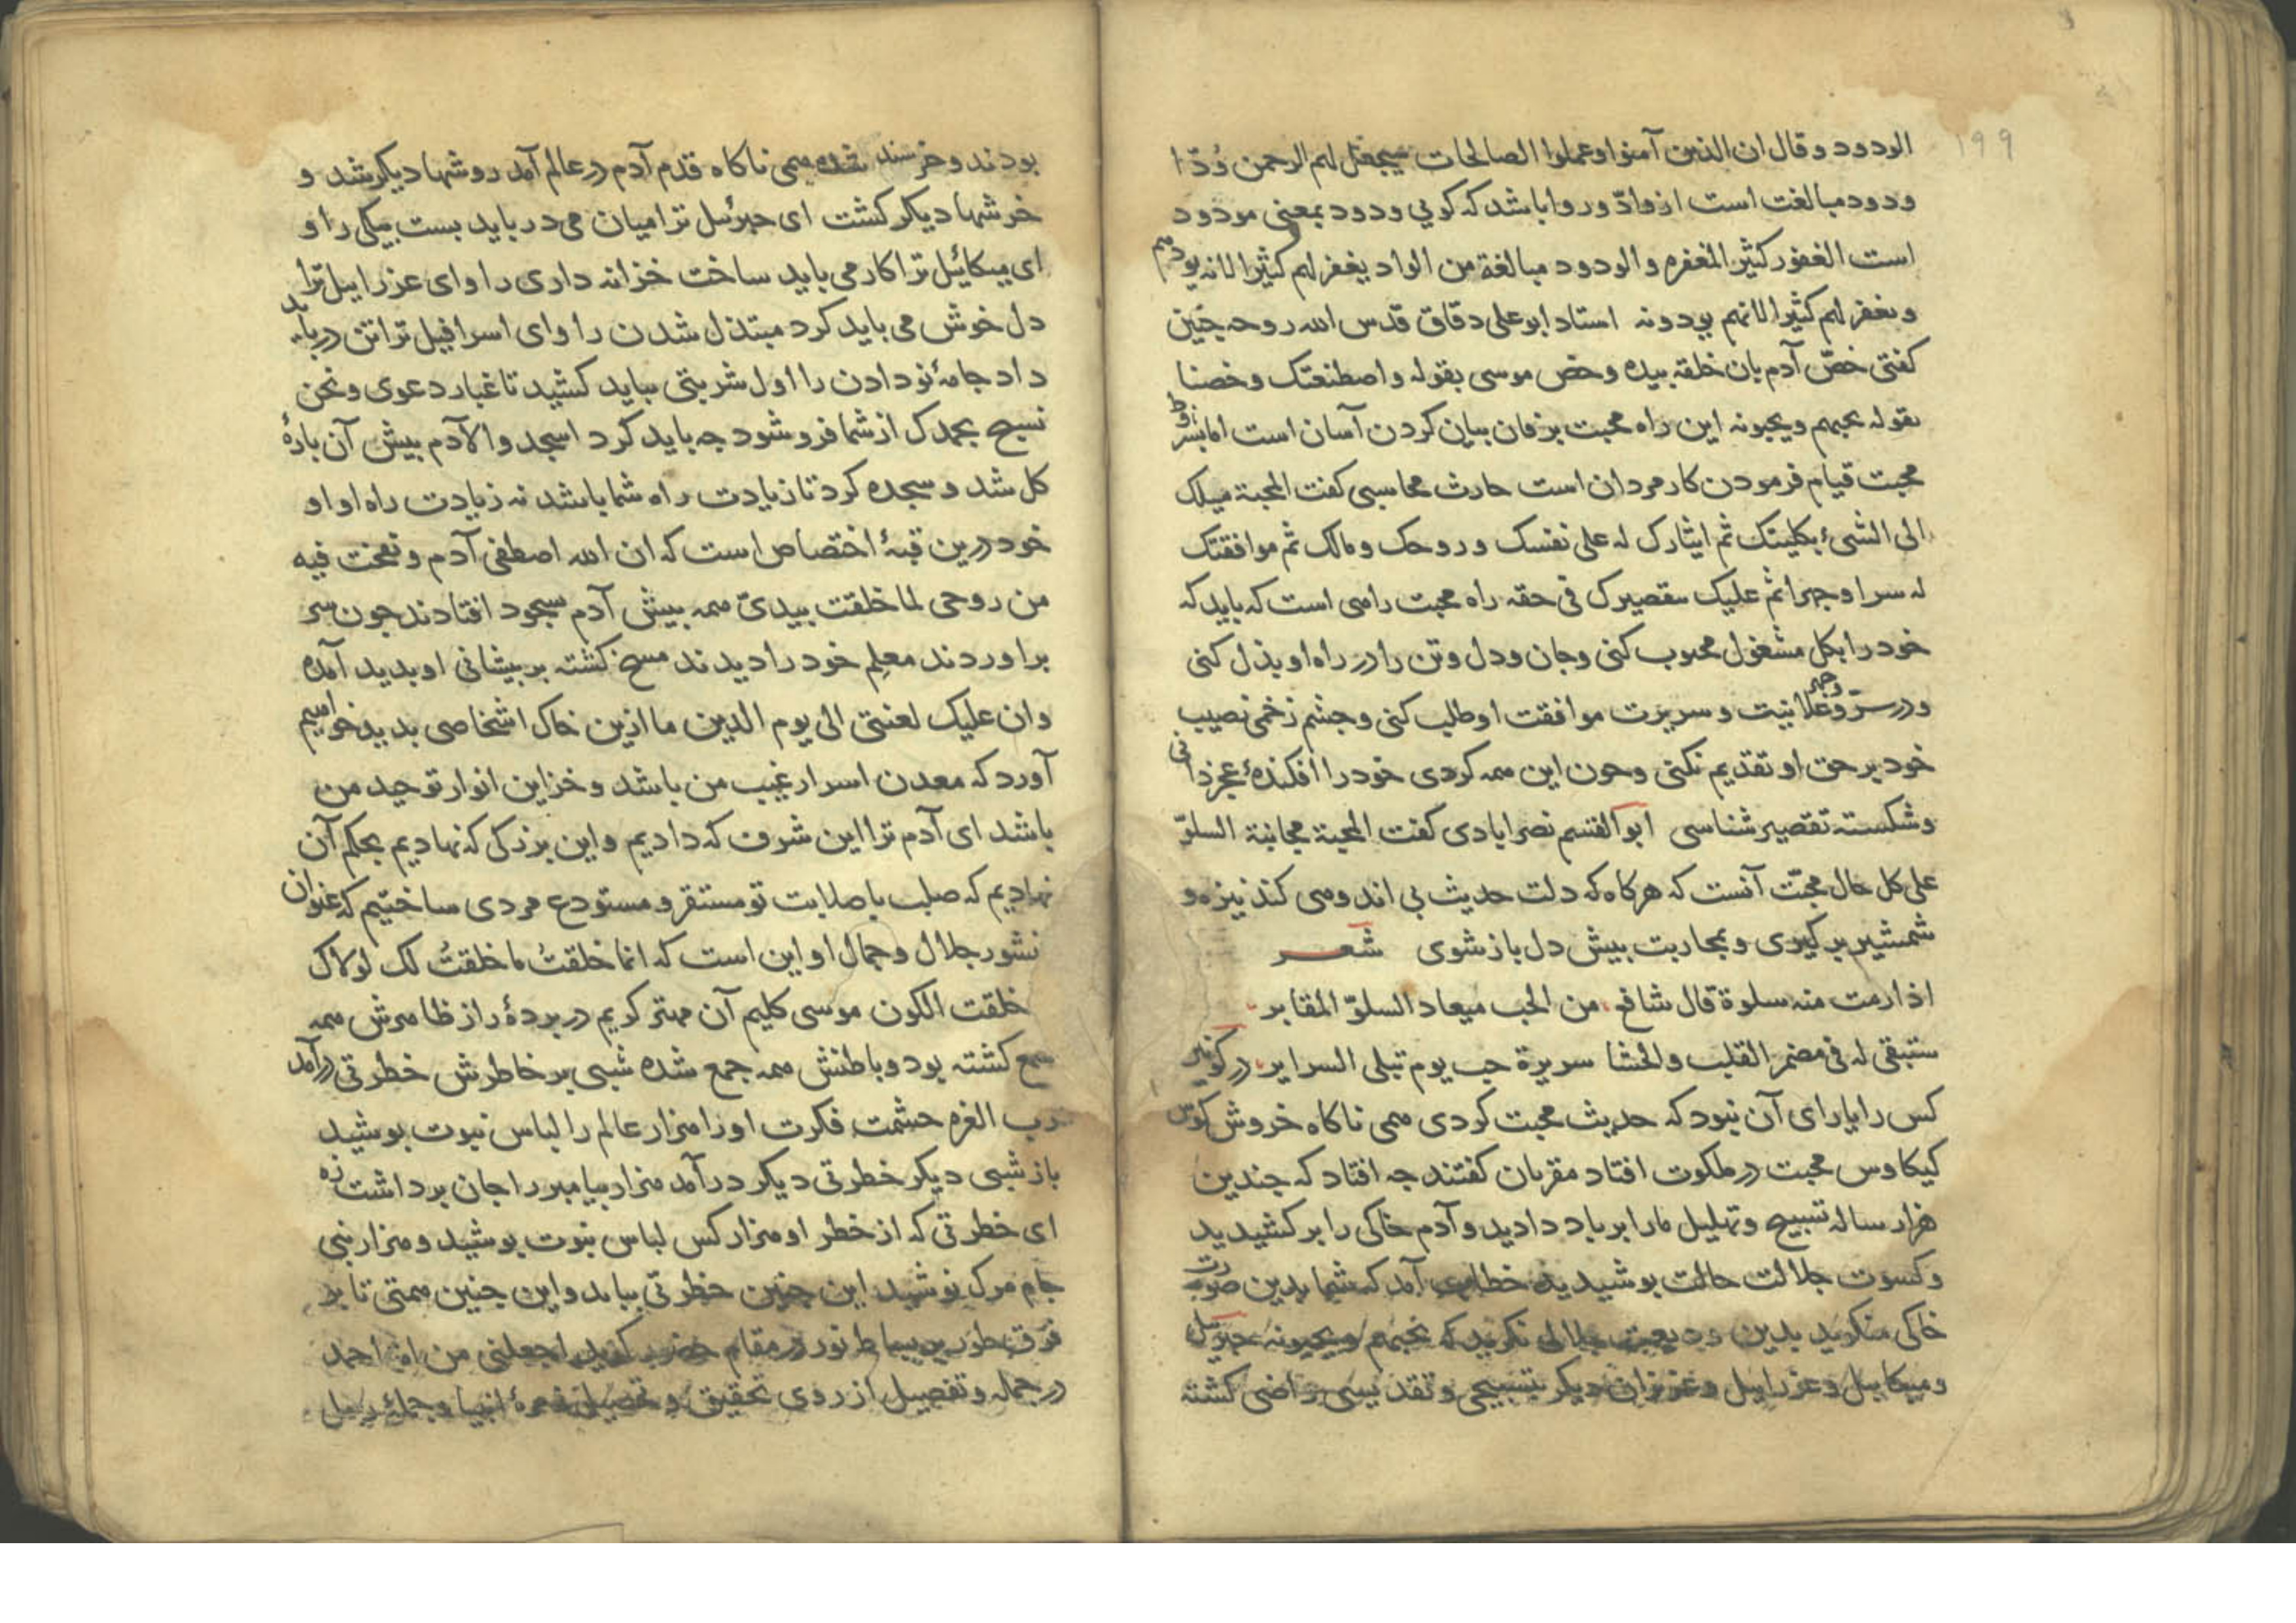 ۱۹۹
الودود وقال ان الذین آمنوا وعملوا الصالحات سیجعل لهم الرحمن وُدّا
ودود مبالغت است از وادّ وروا باشد که کویی ودود بمعنی مودود
است الغفور کثیر المغفره والودود مبالغة من الواد یغفر لهم کثیرا لانه یودهم
ویغفر لهم کثیرا لانهم یودونه استاد ابو علی دقاق قدس الله روحه چنین
کفتی خصّ آدم بان خلقه بیده وخص موسی بقوله واصطنعتک وخصنا
بقوله یحبهم ویحبونه این راه محبت بزفان بیان کردن آسان است اما بشرط
محبت قیام فرمودن کار مردان است حارث محاسبی کفت المحبة میلک
الی الشیء بکلیتک ثم ایثارک له علی نفسک وروحک ومالک ثم موافقتک
له سرا وجهرا ثم علیک بتقصیرک فی حقه راه محبت راهی است که باید که
خود را بکل مشغول محبوب کنی وجان ودل وتن را در راه او بذل کنی
ودر سرّ وجهر وعلانیت وسریرت موافقت او طلب کنی وچشم زخمی نصیب
خود بر حق او تقدیم نکنی وچون این همه کردی خود را افکندهٔ عجز دانی
وشکسته تقصیر شناسی ابو القسم نصرابادی کفت المحبة مجانبة السلوّ
علی کل حال محبّت آنست که هرکاه که دلت حدیث بی اندوهی کند نیزه و
شمشیر برکیری وبمحاربت بیش دل باز شوی شعر
اذا رمت منه سلوة قال شافع من الحب میعاد السلوّ المقابر
ستبقی له فی مضمر القلب والحشا سریرة حب یوم تبلی السرایر در کونین
کس را یارای آن نبود که حدیث محبت کردی همی ناکاه خروش کوس
کیکاوس محبت در ملکوت افتاد مقربان کفتند چه افتاد که چندین
هزار ساله تسبیح وتهلیل ما را بر باد دادید وآدم خاکی را برکشیدید
وکسوت جلالت حالت بوشیدید خطاب آمد که شما بدین صورت
خاکی منکرید بدین ودیعت جلالی نکرید که یحبهم ویحبونه جبرئیل
ومیکاییل وعزراییل وعزیزان دیکر بتسبیحی وتقدیسی راضی کشته
بودند وخرسند شده همی ناکاه قدم آدم در عالم آمد روشها دیکر شد و
خرشها دیکر کشت ای جبرئیل ترا میان می درباید بست بیکی را و
ای میکائیل ترا کار می باید ساخت خزانه داری را وای عزراییل ترا
دل خوش می باید کرد مبتذل شدن را وای اسرافیل ترا تن درباید
داد جامهٔ نو دادن را اول شربتی بباید کشید تا غبار دعوی ونحن
نسبح بحمدک از شما فرو شود چه باید کرد اسجدوا لآدم بیش آن بارهٔ
کل شد وسجده کرد تا زیادت راه شما باشد نه زیادت راه او او
خود درین قبهٔ اختصاص است که ان الله اصطفی آدم ونفخت فیه
من روحی لما خلقت بیدیّ همه بیش آدم بسجود افتادند چون سر
براوردند معلم خود را دیدند مسخ کشته بر بیشانی او بدید آمده
وان علیک لعنتی الی یوم الدین ما ازین خاک اشخاصی بدید خواهیم
آورد که معدن اسرار غیب من باشد وخزاین انوار توحید من
باشد ای آدم ترا این شرف که دادیم واین بزرکی که نهادیم بحکم آن
نهادیم که صلب باصلابت تو مستقر ومستودع مردی ساختیم که عنوان
نشور جلال وجمال او این است که انما خلقتُ ما خلقتُ لک لولاک
خلقت الکون موسی کلیم آن مهتر کریم در بردهٔ راز ظاهرش همه
سمع کشته بود وباطنش همه جمع شده شبی بر خاطرش خطرتی درآمد
رب العزه حشمت فکرت او را هزار عالم را لباس نبوت بوشید
باز شبی دیکر خطرتی دیکر درآمد هزار بیامبر را جان برداشت زه
ای خطرتی که از خطر او هزار کس لباس نبوت بوشید وهزار نبی
جام مرک نوشید این چنین خطرتی بیاید واین چنین همتی تا بر
فرق طور بر بساط نور در مقام حضرت کوید اجعلنی من امة احمد
در جمله وتفصیل از روی تحقیق وتحصیل زمرهٔ انبیا وجملهٔ رسل